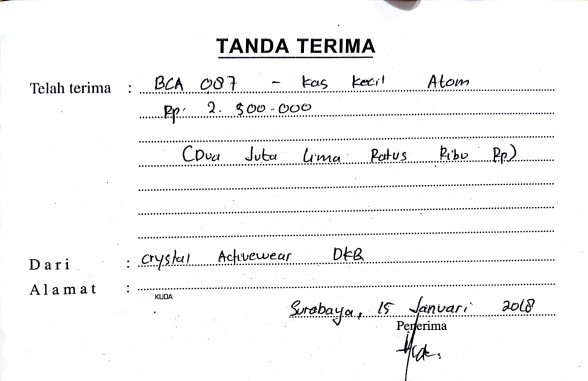 TANDA TERIMA
Telah terima : BCA 087 - kas kecil Atom
Rp. 2.500.000
(Dua Juta Lima Ratus Ribu Rp)
Dari : Crystal Activewear DKB
Alamat :
KUDA
Surabaya, 15 Januari 2018
Penerima